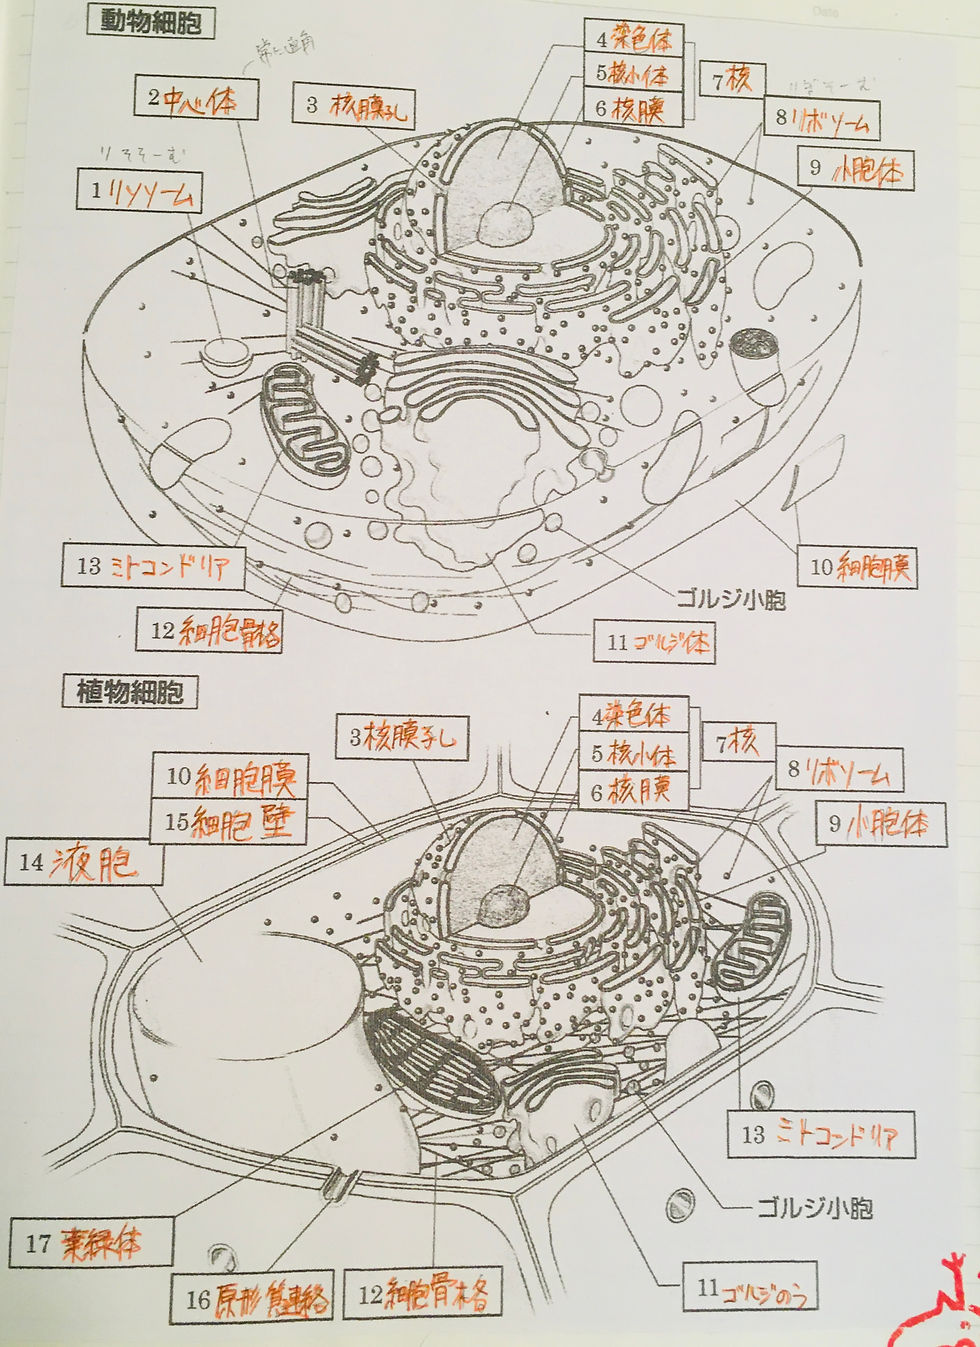 Date
動物細胞
常に直角
2 中心体
3 核膜孔
4 染色体
5 核小体
6 核膜
7 核
りぼそーむ
8 リボソーム
9 小胞体
りそそーむ
1 リソソーム
13 ミトコンドリア
10 細胞膜
ゴルジ小胞
12 細胞骨格
11 ゴルジ体
植物細胞
3 核膜孔
4 染色体
5 核小体
6 核膜
7 核
10 細胞膜
8 リボソーム
15 細胞壁
9 小胞体
14 液胞
13 ミトコンドリア
ゴルジ小胞
17 葉緑体
16 原形質連絡
12 細胞骨格
11 ゴルジのう